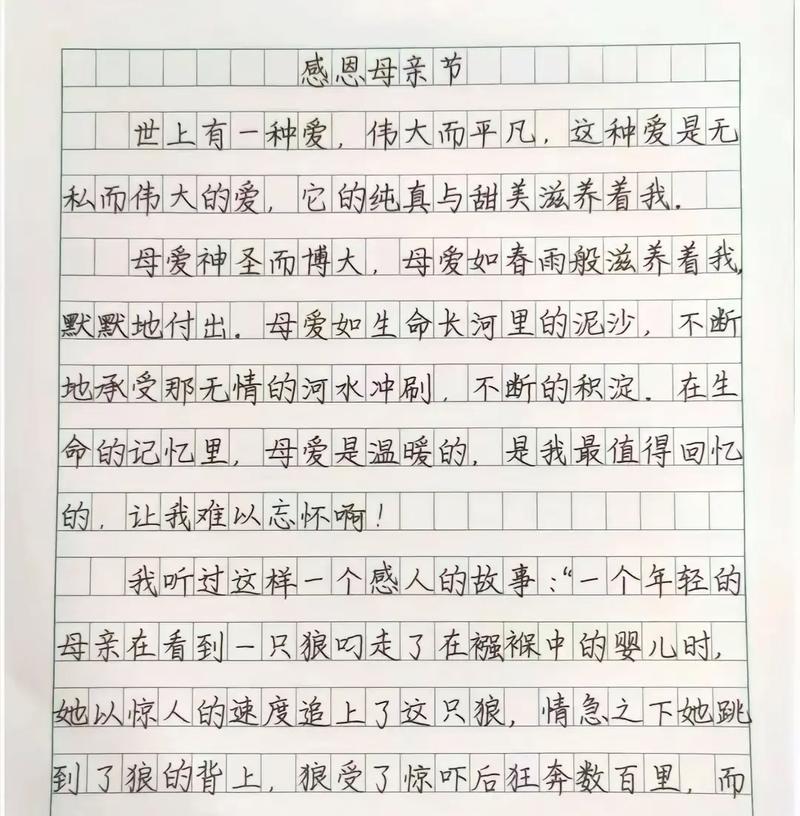 感恩母亲节
世上有一种爱，伟大而平凡，这种爱是无
私而伟大的爱，它的纯真与甜美滋养着我.
母爱神圣而博大，母爱如春雨般滋养着我，
默默地付出.母爱如生命长河里的泥沙，不断
地承受那无情的河水冲刷，不断的积淀.在生
命的记忆里，母爱是温暖的，是我最值得回忆
的，让我难以忘怀啊！
我听过这样一个感人的故事：“一个年轻的
母亲在看到一只狼叼走了在襁褓中的婴儿时，
她以惊人的速度追上了这只狼，情急之下她跳
到了狼的背上，狼受了惊吓后狂奔数百里，而